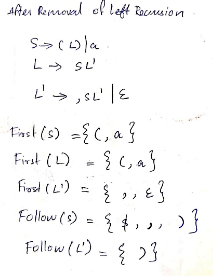 After Removal of Left Recursion
S → (L)|a
L → SL'
L' → ,SL' | ε
First(S) = { (, a }
First(L) = { (, a }
First(L') = { , , ε }
Follow(S) = { $, , , ) }
Follow(L') = { ) }